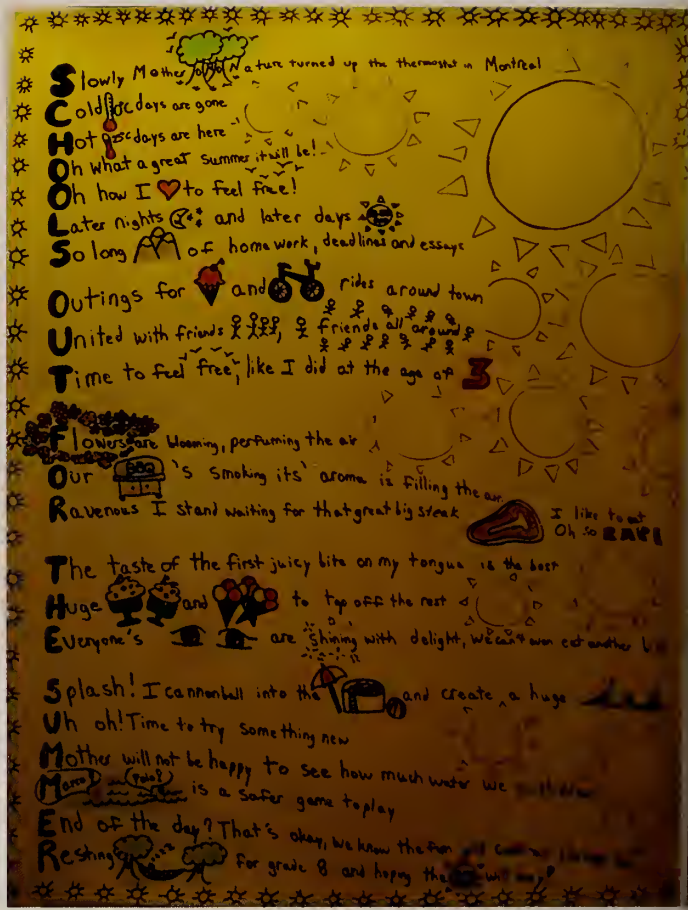 Slowly Mother Nature turned up the thermostat in Montreal
Cold °c days are gone
Hot 25°c days are here
Oh what a great summer it will be!
Oh how I to feel free!
Later nights and later days
So long of homework, deadlines and essays
Outings for and rides around town
United with friends, friends all around
Time to feel free, like I did at the age of 3
Flowers are blooming, perfuming the air
Our BBQ 's smoking its' aroma is filling the air
Ravenous I stand waiting for that great big steak
I like to eat
Oh so RARE!
The taste of the first juicy bite on my tongue is the best
Huge and to top off the rest
Everyone's are shining with delight, we can't even eat another
Splash! I cannonball into the and create a huge
Uh oh! Time to try something new
Mother will not be happy to see how much water we
Marco! Polo! is a safer game to play
End of the day? That's okay, we know the fun
Resting for grade 8 and hoping the will